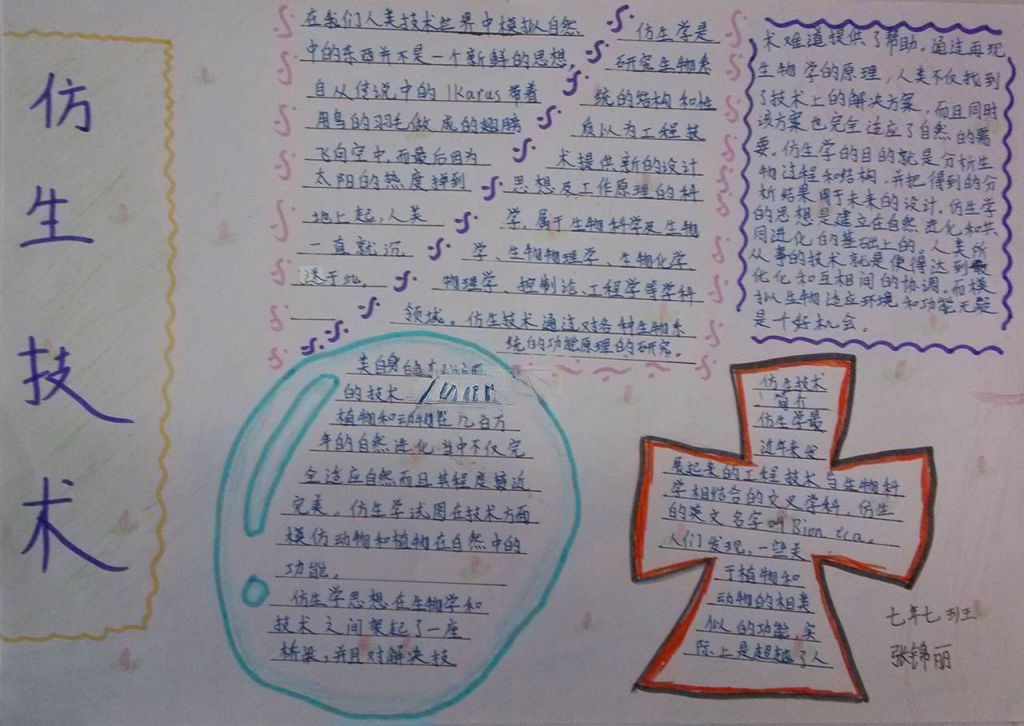 仿生技术
在我们人类技术世界中模拟自然
中的东西并不是一个新鲜的思想,
自从传说中的Ikarus带着
用鸟的羽毛做成的翅膀
飞向空中,而最后因为
太阳的热度掉到
地上起,人类
一直就沉
迷于此。
仿生学是
研究生物系
统的结构和性
质以为工程技
术提供新的设计
思想及工作原理的科
学,属于生物科学及生物
学、生物物理学、生物化学
物理学、控制论、工程学等学科
领域。仿生技术通过对各种生物系
统的功能原理的研究。
术难道提供了帮助。通过再现
生物学的原理,人类不仅找到
了技术上的解决方案,而且同时
该方案也完全适应了自然的需
要。仿生学的目的就是分析生
物过程和结构,并把得到的分
析结果用于未来的设计。仿生学
的思想是建立在自然进化和共
同进化的基础上的。人类所
从事的技术就是使得达到最
优化和互相间的协调。而模
拟生物适应环境和功能无疑
是个好机会。
类自身的
的技术
植物和动物在几百万
年的自然进化当中不仅完
全适应自然而且其程度接近
完美。仿生学试图在技术方面
模仿动物和植物在自然中的
功能。
仿生学思想在生物学和
技术之间架起了一座
桥梁,并且对解决技
仿生技术
简介
仿生学最
近年来发
展起来的工程技术与生物科
学相结合的交叉学科。仿生
的英文名字叫Bion ica。
人们发现,一些关
于植物和
动物的相类
似的功能,实
际上是超越了人
七年七班
张锦丽